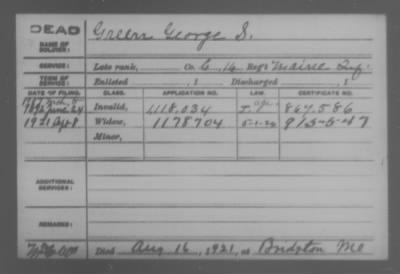 DEAD
NAME OF SOLDIER: Green George S.
SERVICE: Late rank, Co. C, 16 Reg't Maine Inf.
TERM OF SERVICE: Enlisted , 1 Discharged , 1
DATE OF FILING. CLASS. APPLICATION NO. LAW. CERTIFICATE NO.
Invalid, 1118,034 867,586
1921 Apr 8 Widow, 1178704 5-1-20
Minor,
ADDITIONAL SERVICES:
REMARKS:
Died Aug 16, 1921, at Bridgton Me